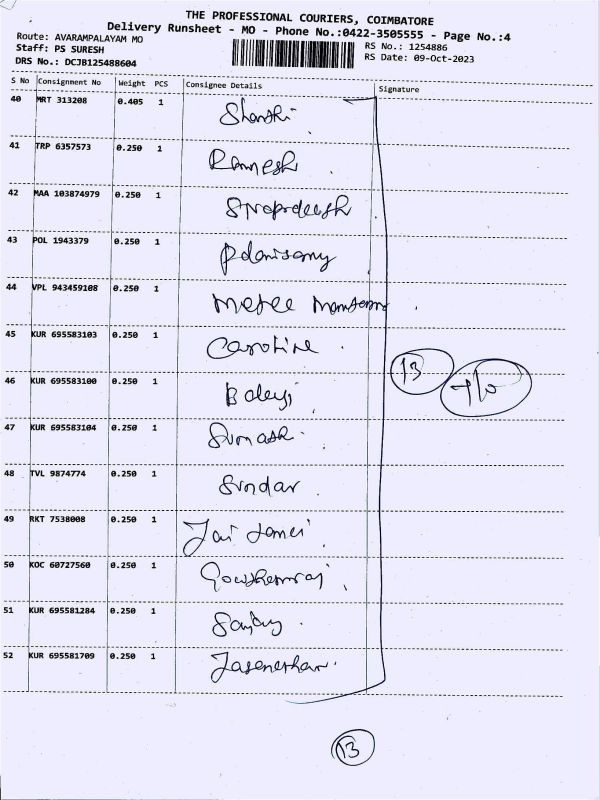 THE PROFESSIONAL COURIERS, COIMBATORE
Delivery Runsheet - MO - Phone No.:0422-3505555 - Page No.:4
Route: AVARAMPALAYAM MO
Staff: PS SURESH
DRS No.: DCJB125488604
RS No.: 1254886
RS Date: 09-Oct-2023
S No Consignment No Weight PCS Consignee Details Signature
40 MRT 313208 0.405 1
41 TRP 6357573 0.250 1 Ramesh
42 MAA 103874979 0.250 1
43 POL 1943379 0.250 1 Palanisamy
44 VPL 943459108 0.250 1
45 KUR 695583103 0.250 1 Caroline
46 KUR 695583100 0.250 1 Balaji
13
47 KUR 695583104 0.250 1
48 TVL 9874774 0.250 1 Sundar
49 RKT 7538008 0.250 1 Jai
50 KOC 60727560 0.250 1
51 KUR 695581284 0.250 1 Sanjay
52 KUR 695581709 0.250 1
13